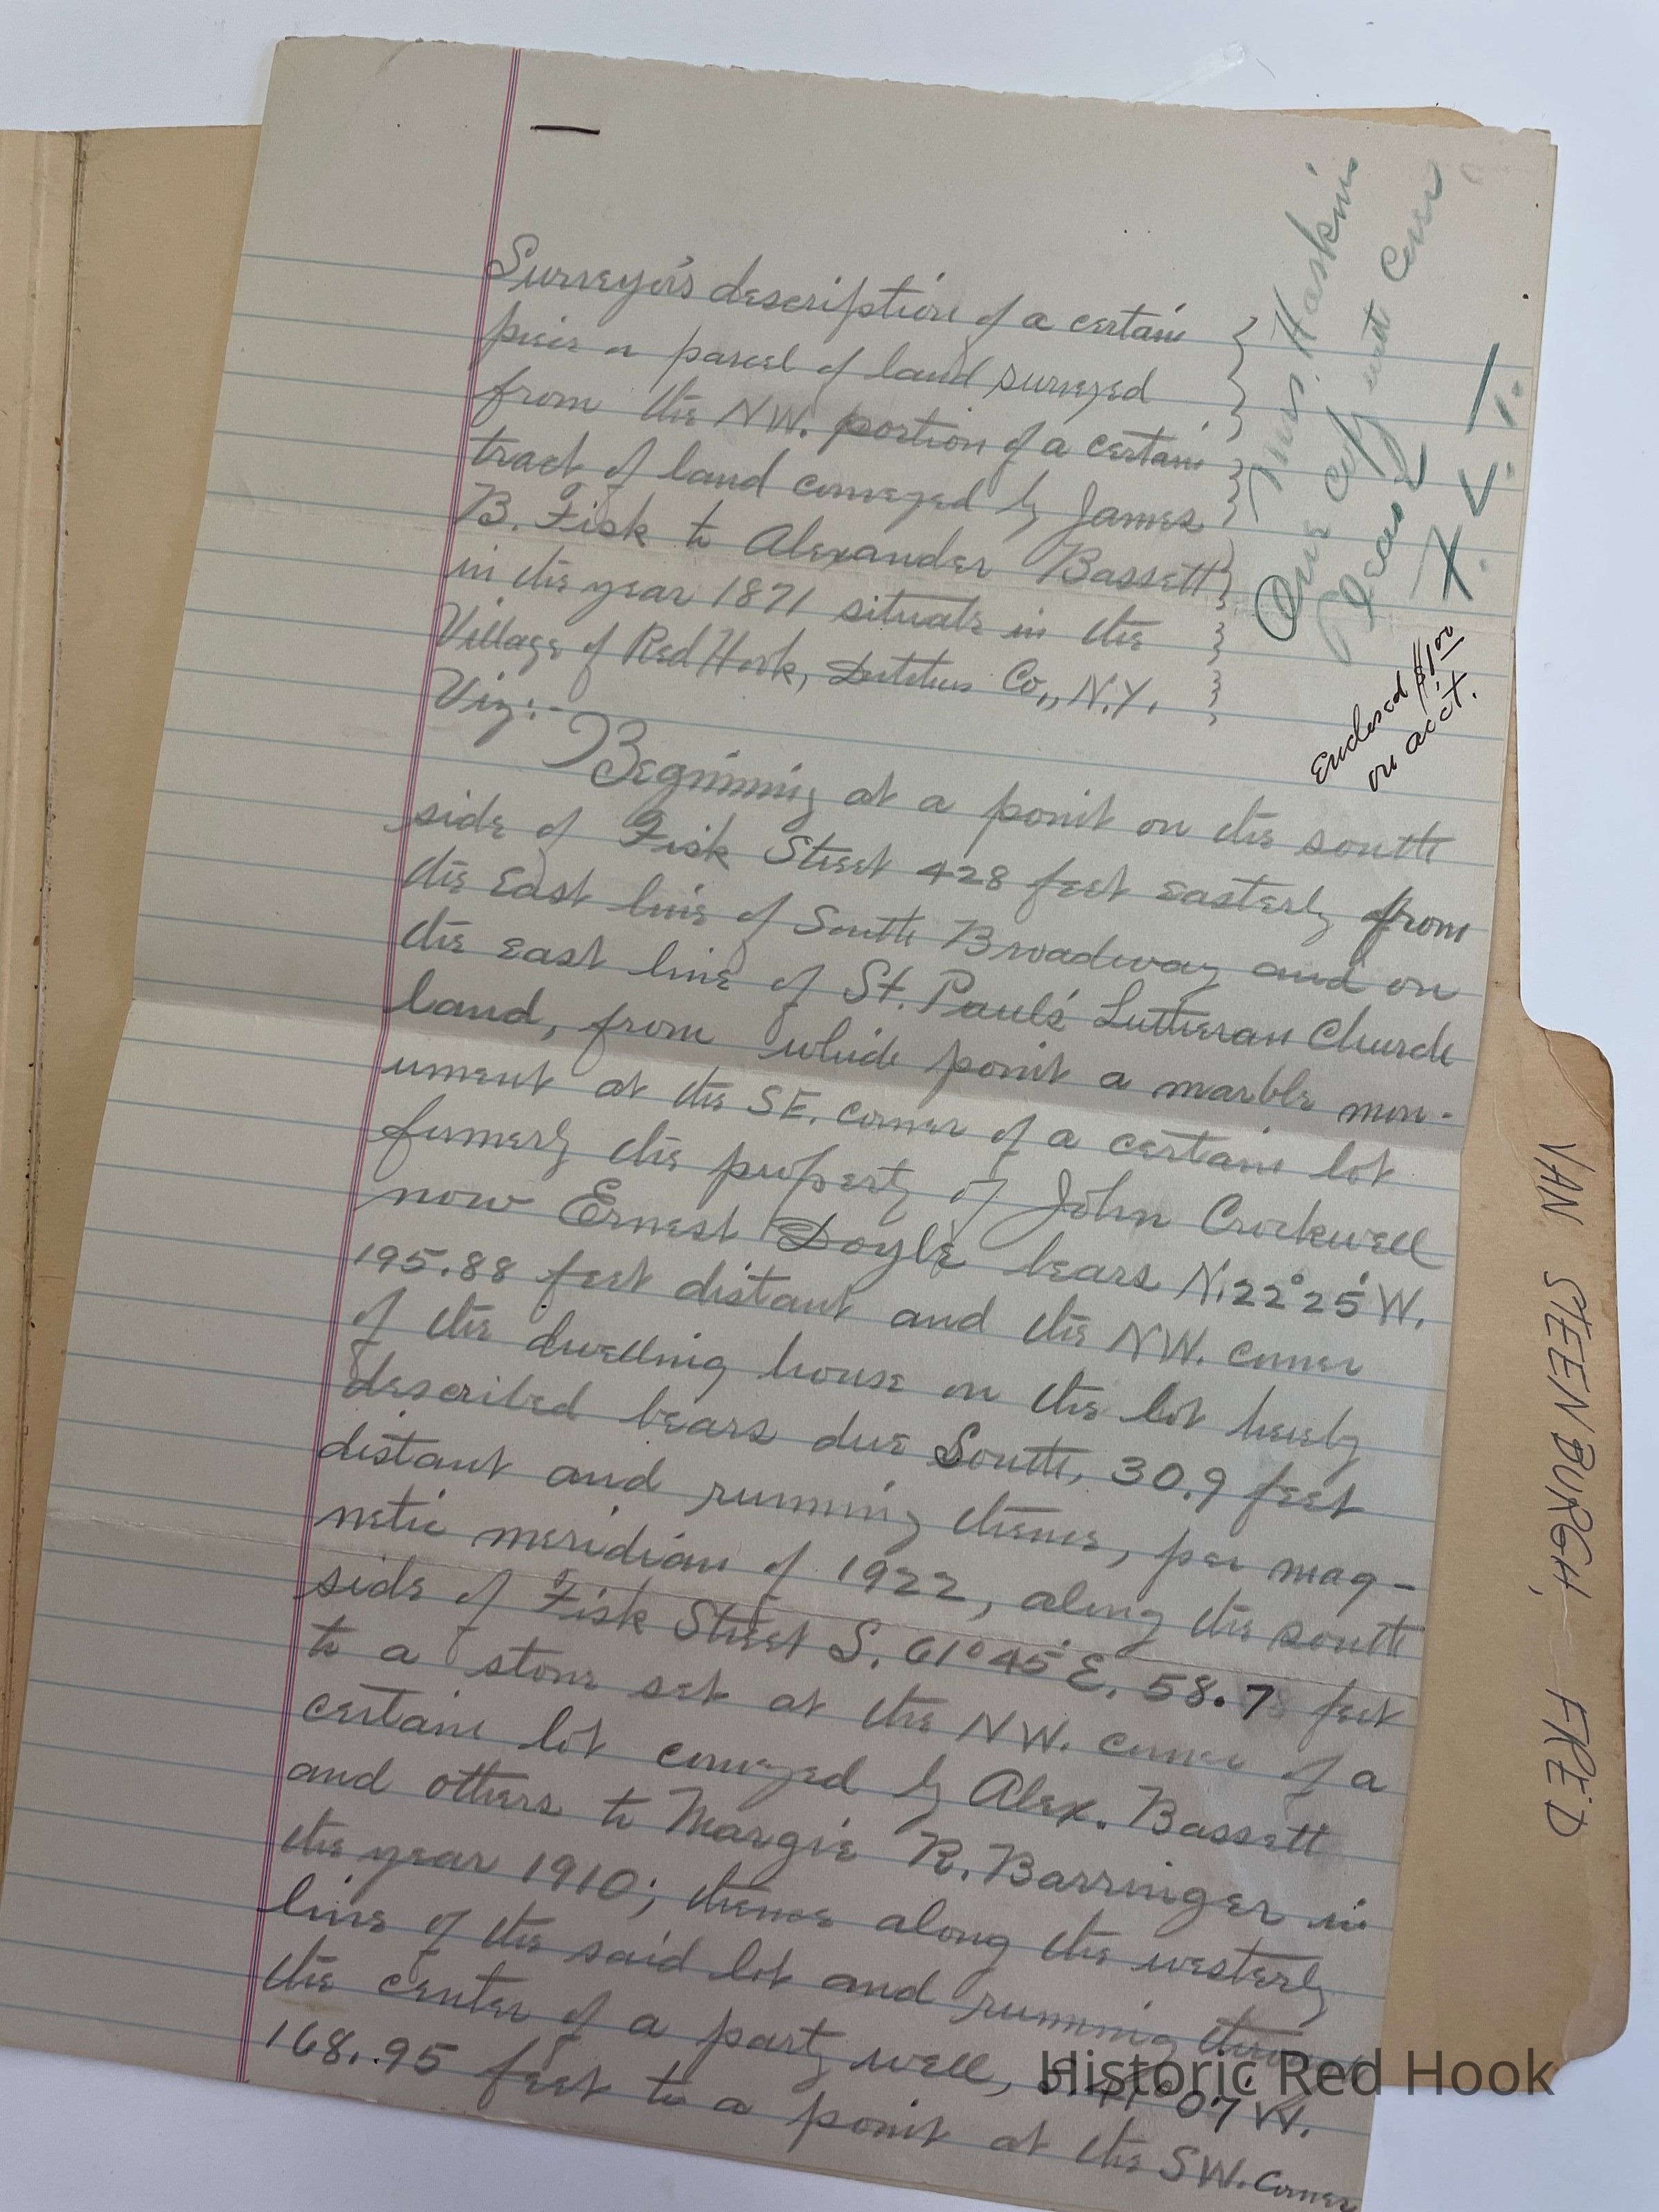 Surveyor's description of a certain
piece or parcel of land surveyed
from the NW. portion of a certain
tract of land conveyed by James
B. Fisk to Alexander Bassett
in the year 1871 situate in the
Village of Red Hook, Dutchess Co., N.Y.
Viz:-
Beginning at a point on the south
side of Fisk Street 428 feet easterly from
the East line of South Broadway and on
the east line of St. Paul's Lutheran Church
land, from which point a marble mon-
ument at the SE. corner of a certain lot
formerly the property of John Crockwell
now Ernest Doyle bears N. 22° 25' W.
195.88 feet distant and the NW. corner
of the dwelling house on the lot hereby
described bears due South, 30.9 feet
distant and running thence, per mag-
netic meridian of 1922, along the south
side of Fisk Street S. 61° 45' E. 58.7 feet
to a stone set at the NW. corner of a
certain lot conveyed by Alex. Bassett
and others to Margie R. Barringer in
the year 1910; thence along the westerly
line of the said lot and running through
the center of a party well, 07' W.
168.95 feet to a point at the SW. corner
Mrs. Haskin
One copy
Please
Enclosed $1.00
on acc't.
VAN STEENBURGH, FRED
Historic Red Hook